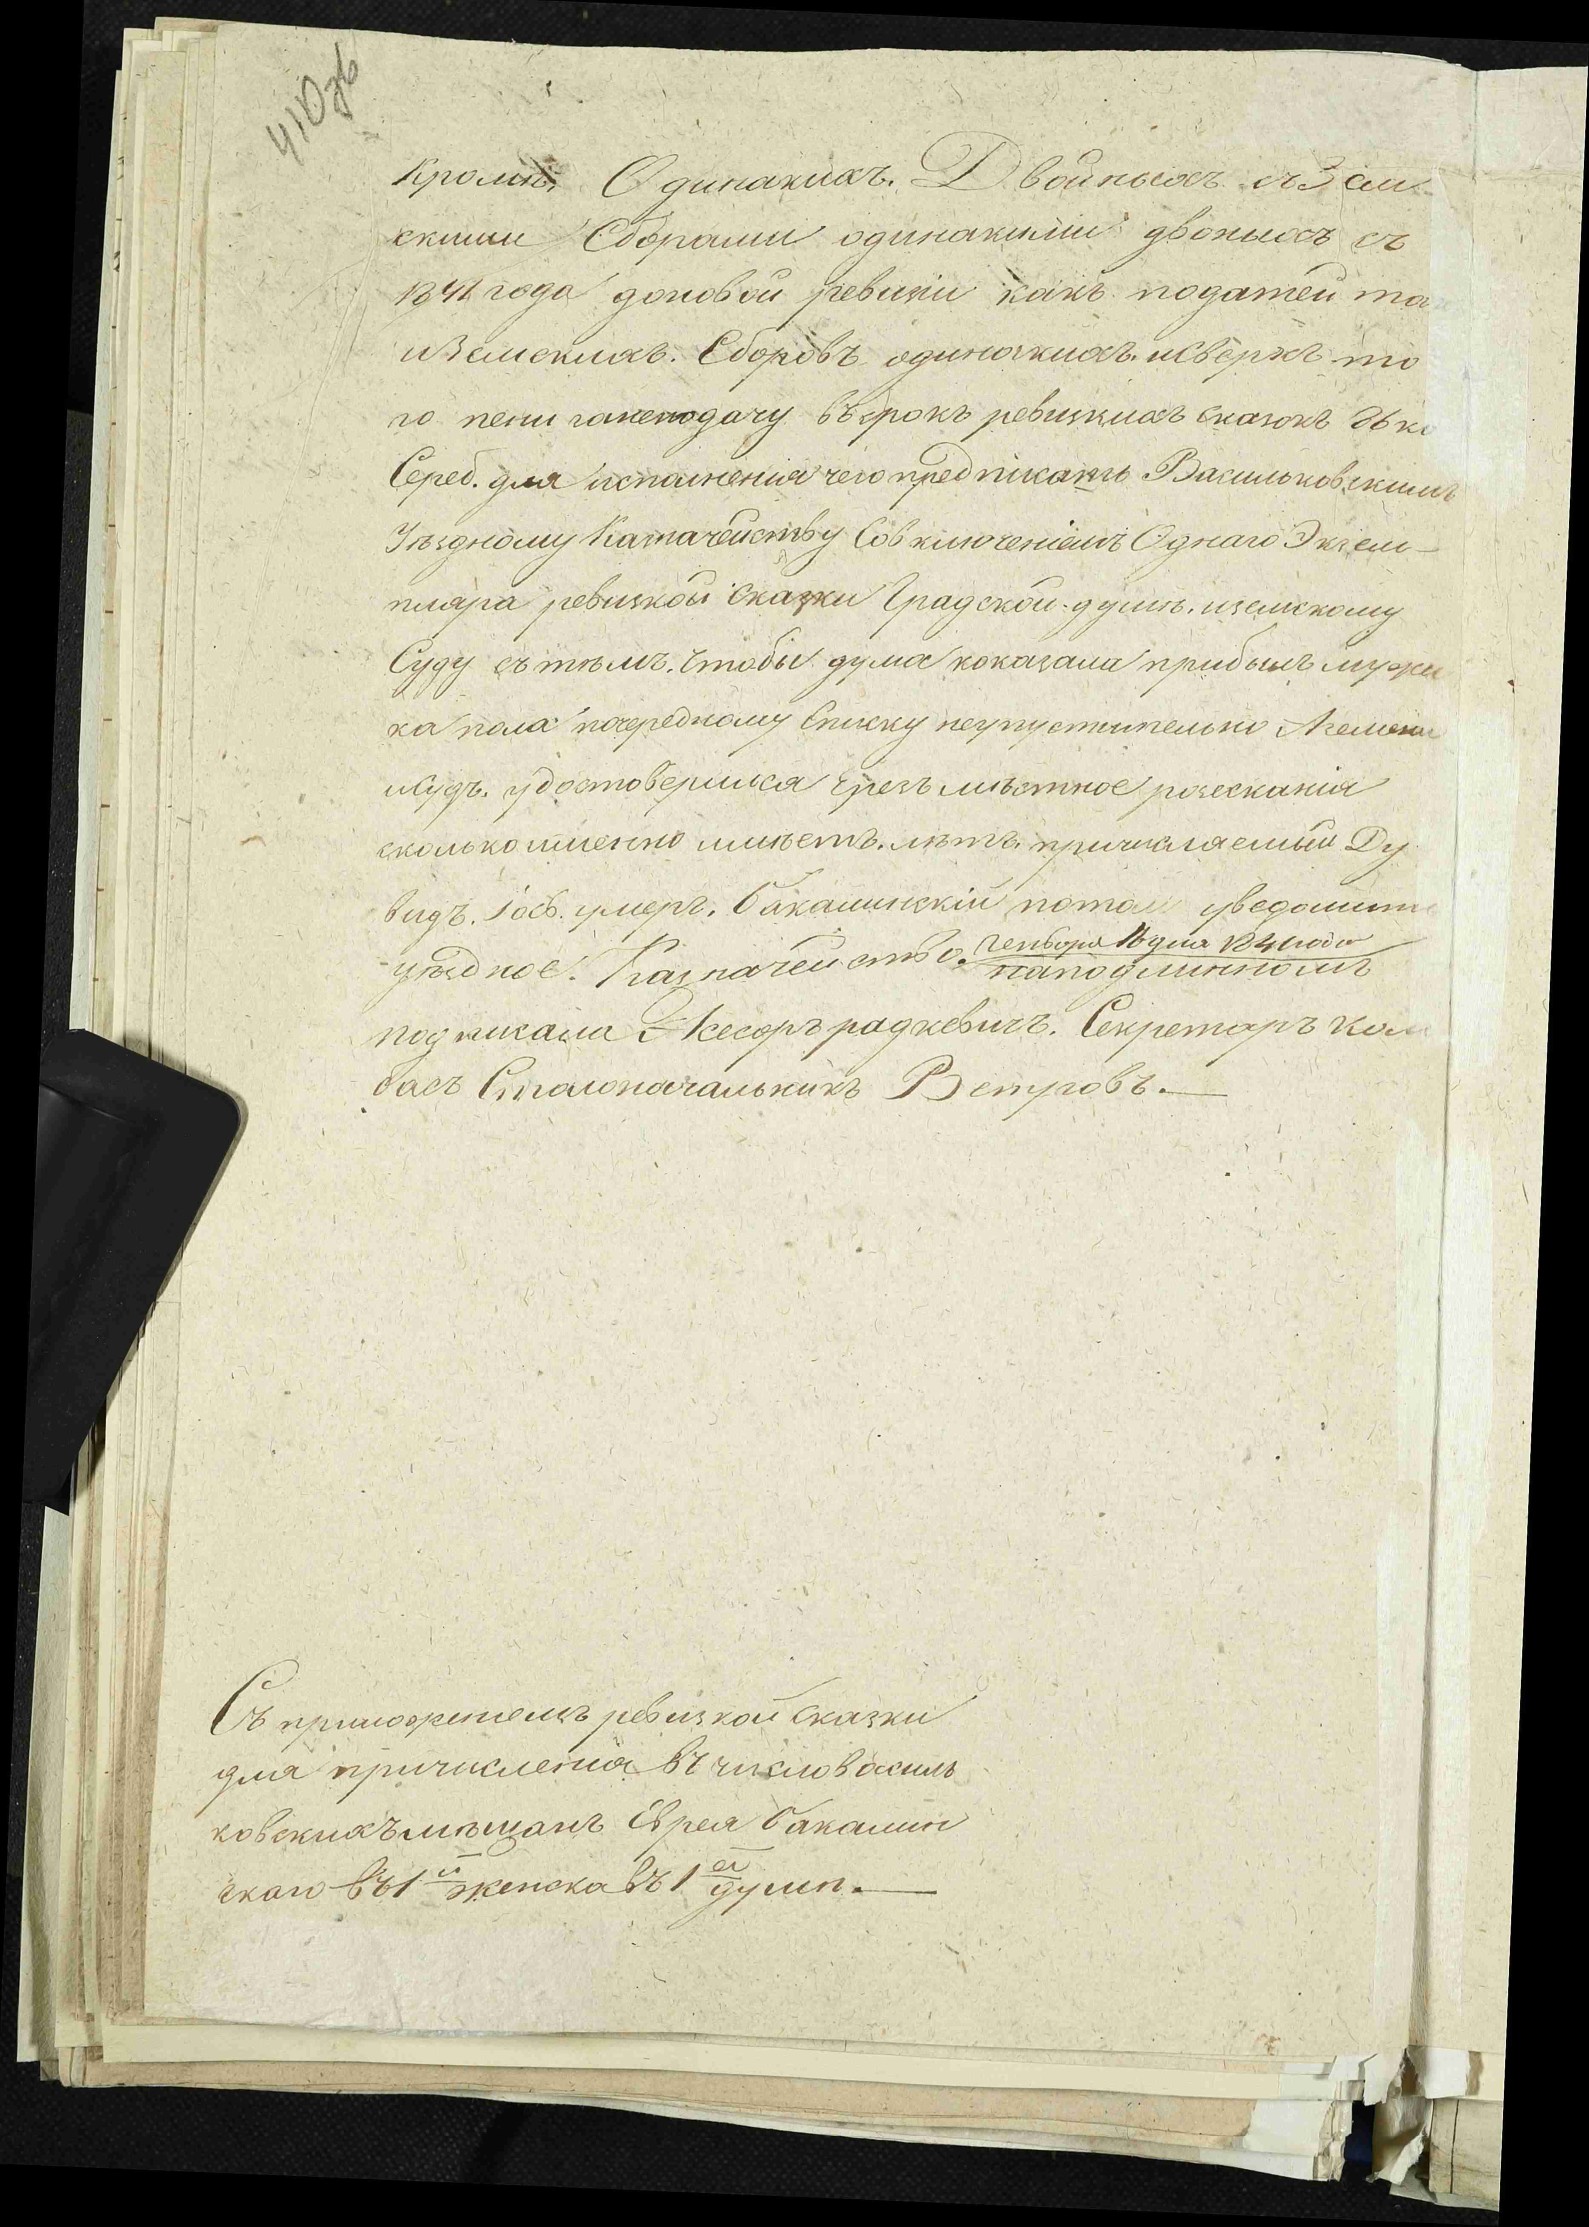 410 зв
Кроммъ, Одинакихъ. Двойныхъ съ Зем
скими Сборами одинакими двоныхъ съ
1841 года доновой ревизіи какъ податей та
и Земскихъ. Сборовъ одинакихъ. исверхъ то
го пени занеподачу въ срокъ ревизкихъ сказокъ
Сереб. для исполненія чего предписать Васильковскимъ
Уѣздному Казначейству Совключеніемъ Однаго Экзем-
пляра ревизкой Сказки Градской думѣ. иземскому
Суду съ тѣмъ. Чтобы дума показала прибылъ мужи
ка пола почередному Списку неупустительно Аземски
исудъ. удостоверился Чрезъ мѣстное розескания
сколько именно имѣетъ. лѣтъ. причисляемый Ду
видъ. Іос. умеръ. Бакалинскій потом уведомити
уѣздное. Казначейство. Генваря дня 184 года
наподлинномъ
подписали Асесоръ радкевичъ. Секретаръ Кол
басъ Столоначальникъ Ветровъ.—
Съ приложениемъ ревизкой Сказки
для причисления въ число василь
ковскихъ мѣщанъ Еврея Бакалин
скаго въ 1й женска въ 1ей думи.—